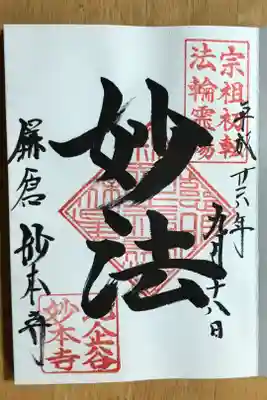 宗祖初転
法輪靈場
平成廿六年九月十八日
妙法
鎌倉 妙本寺
比企谷
妙本寺